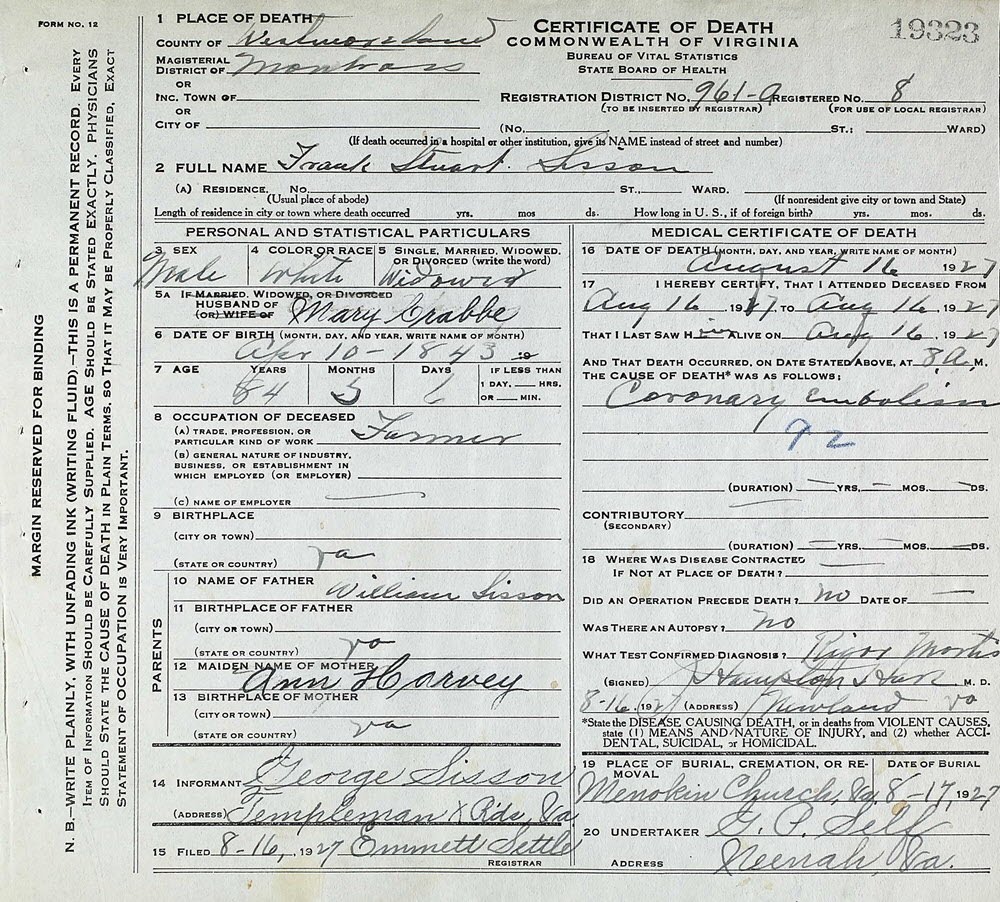 FORM NO. 12
MARGIN RESERVED FOR BINDING
N. B.—WRITE PLAINLY, WITH UNFADING INK (WRITING FLUID)—THIS IS A PERMANENT RECORD. EVERY
ITEM OF INFORMATION SHOULD BE CAREFULLY SUPPLIED. AGE SHOULD BE STATED EXACTLY. PHYSICIANS
SHOULD STATE THE CAUSE OF DEATH IN PLAIN TERMS, SO THAT IT MAY BE PROPERLY CLASSIFIED. EXACT
STATEMENT OF OCCUPATION IS VERY IMPORTANT.
1 PLACE OF DEATH
COUNTY OF Westmoreland
MAGISTERIAL
DISTRICT OF Montross
OR
INC. TOWN OF
OR
CITY OF
CERTIFICATE OF DEATH
COMMONWEALTH OF VIRGINIA
BUREAU OF VITAL STATISTICS
STATE BOARD OF HEALTH
19323
REGISTRATION DISTRICT NO. 961-A REGISTERED NO. 8
(TO BE INSERTED BY REGISTRAR) (FOR USE OF LOCAL REGISTRAR)
(No. ST.: WARD)
(If death occurred in a hospital or other institution, give its NAME instead of street and number)
2 FULL NAME Frank Stuart Sisson
(A) RESIDENCE. No. ST., WARD.
(Usual place of abode) (If nonresident give city or town and State)
Length of residence in city or town where death occurred yrs. mos ds. How long in U. S., if of foreign birth? yrs. mos ds.
PERSONAL AND STATISTICAL PARTICULARS
3 SEX 4 COLOR OR RACE 5 SINGLE, MARRIED, WIDOWED,
OR DIVORCED (write the word)
Male White Widowed
5A IF MARRIED, WIDOWED, OR DIVORCED
HUSBAND OF
(OR) WIFE OF Mary Crabbe
6 DATE OF BIRTH (MONTH, DAY, AND YEAR, WRITE NAME OF MONTH)
Apr 10-1843
7 AGE YEARS MONTHS DAYS IF LESS THAN
1 DAY, HRS.
OR MIN.
84 5 6
8 OCCUPATION OF DECEASED
(A) TRADE, PROFESSION, OR
PARTICULAR KIND OF WORK Farmer
(B) GENERAL NATURE OF INDUSTRY,
BUSINESS, OR ESTABLISHMENT IN
WHICH EMPLOYED (OR EMPLOYER)
(C) NAME OF EMPLOYER
9 BIRTHPLACE
(CITY OR TOWN)
(STATE OR COUNTRY) va
PARENTS
10 NAME OF FATHER
William Sisson
11 BIRTHPLACE OF FATHER
(CITY OR TOWN)
(STATE OR COUNTRY) va
12 MAIDEN NAME OF MOTHER
Ann Harvey
13 BIRTHPLACE OF MOTHER
(CITY OR TOWN)
(STATE OR COUNTRY) va
14 INFORMANT George Sisson
(ADDRESS) Templeman X Rds, Va
15 FILED 8-16, 1927 Emmett Settle
REGISTRAR
MEDICAL CERTIFICATE OF DEATH
16 DATE OF DEATH (MONTH, DAY, AND YEAR, WRITE NAME OF MONTH)
August 16 1927
17 I HEREBY CERTIFY, THAT I ATTENDED DECEASED FROM
Aug 16, 1927, TO Aug 16, 1927
THAT I LAST SAW H im ALIVE ON Aug 16, 1927
AND THAT DEATH OCCURRED, ON DATE STATED ABOVE, AT 8 A. M.
THE CAUSE OF DEATH* WAS AS FOLLOWS:
Coronary embolism
92
(DURATION) — YRS. — MOS. — DS.
CONTRIBUTORY
(SECONDARY)
(DURATION) — YRS. — MOS. — DS.
18 WHERE WAS DISEASE CONTRACTED
IF NOT AT PLACE OF DEATH?
DID AN OPERATION PRECEDE DEATH? no DATE OF —
WAS THERE AN AUTOPSY? no
WHAT TEST CONFIRMED DIAGNOSIS? Rigor Mortis
(SIGNED) M. D.
8-16, 1927 (ADDRESS) Newland va
*State the DISEASE CAUSING DEATH, or in deaths from VIOLENT CAUSES,
state (1) MEANS AND NATURE OF INJURY, and (2) whether ACCI-
DENTAL, SUICIDAL, or HOMICIDAL.
19 PLACE OF BURIAL, CREMATION, OR RE-
MOVAL DATE OF BURIAL
Menokin Church, Va. 8-17, 1927
20 UNDERTAKER G. P. Self
ADDRESS Neenah, Va.